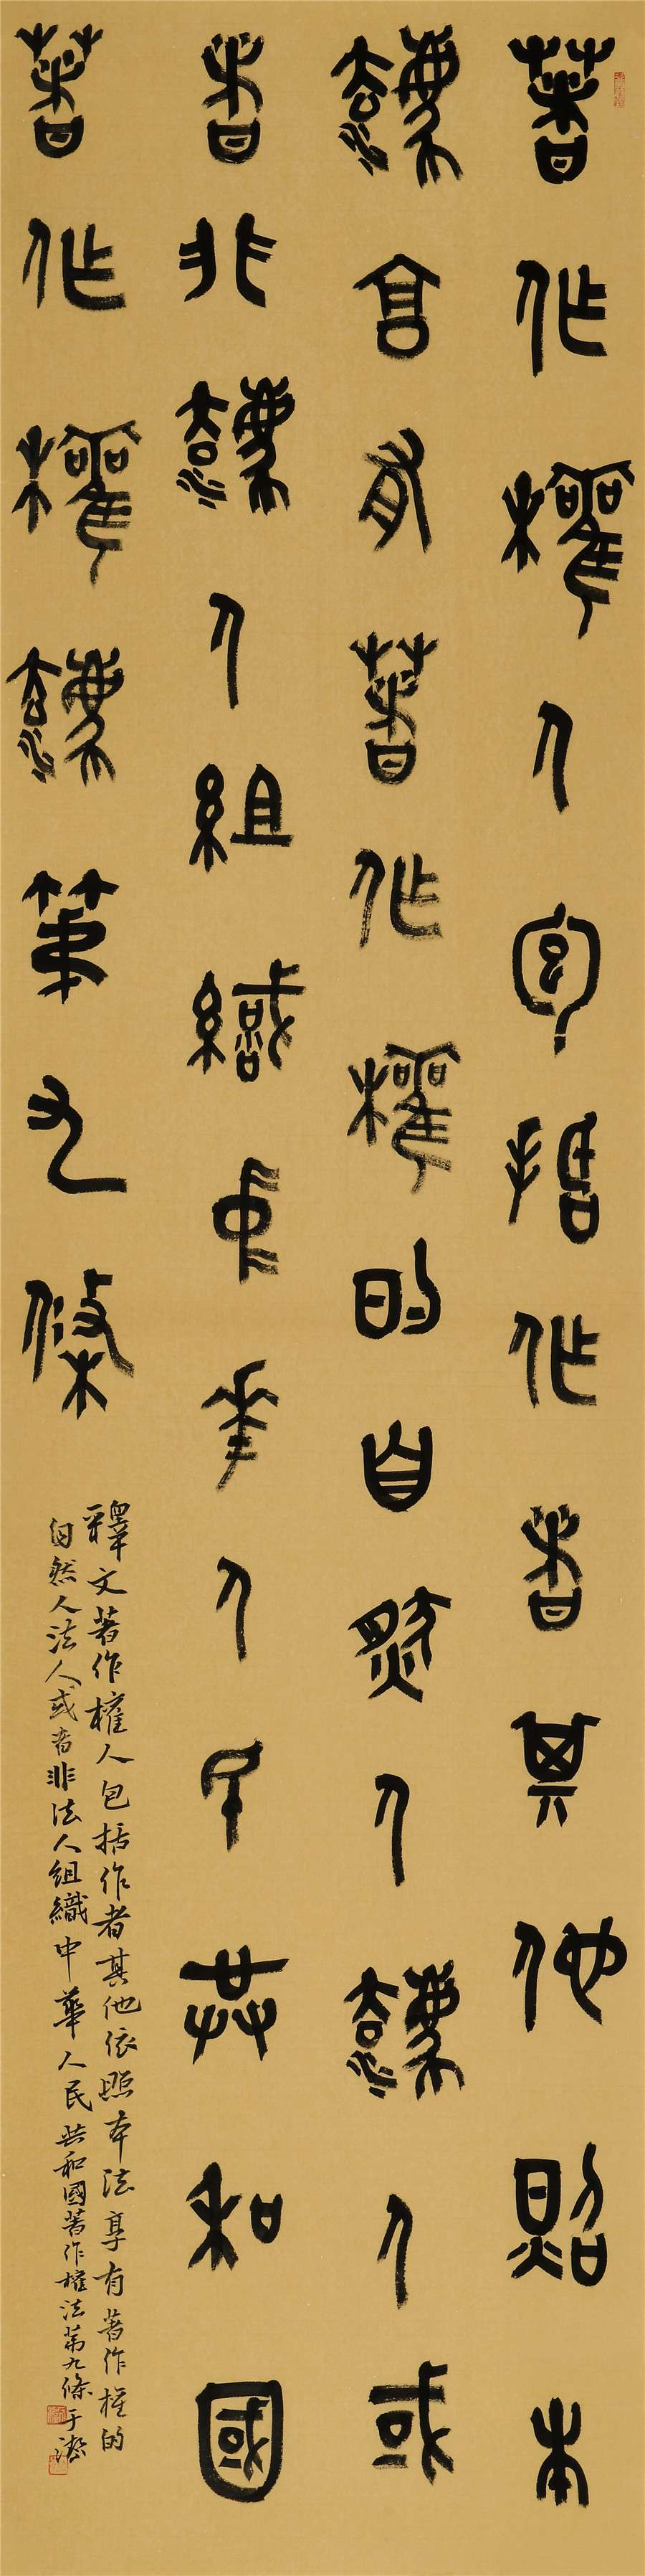 著作權人包括作者其他照本
法享有著作權的自然人法人或
者非法人組織中華人民共和國
著作權法第九條
釋文著作權人包括作者其他依照本法享有著作權的
自然人法人或者非法人組織中華人民共和國著作權法第九條于